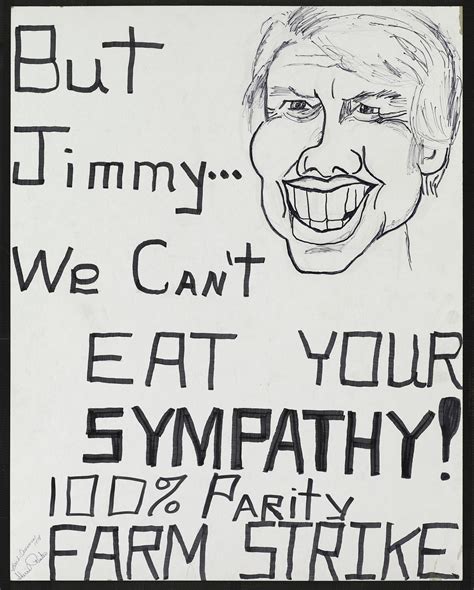 But
Jimmy...
We Can't
EAT YOUR
SYMPATHY!
100% Parity
FARM STRIKE